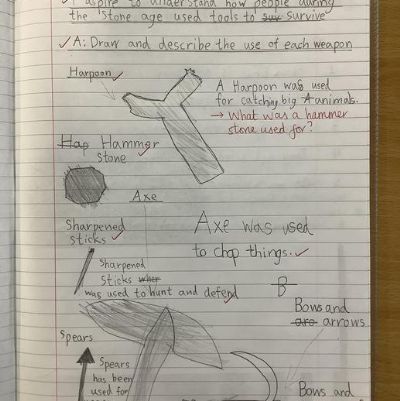 I aspire to understand how people during
the 'Stone age used tools to sur survive'
A: Draw and describe the use of each weapon
Harpoon
A Harpoon was used
for catching big animals.
→ What was a hammer
stone used for?
Hap Hammer
stone
Axe
Sharpened
sticks
Axe was used
to chop things.
Sharpened
sticks wher
was used to hunt and defend
B
Bows and
aro arrows
Spears
Spears
has been
used for
Bows and